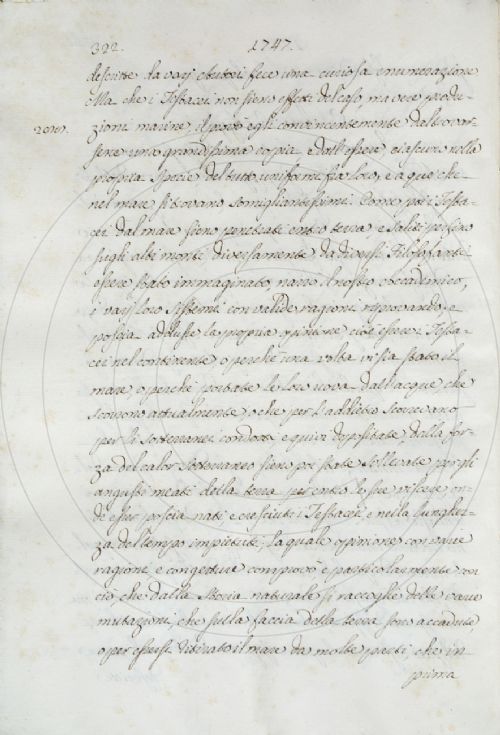 322. 1747.
descritte da varj Autori fece una curiosa enumerazione
Ma che i Testacei non sieno effetti del caso, ma vere produ-
zioni marine, il provò egli convincentemente dal trovar-
sene una grandissima copia, e dall'essere ciascuno nella
propria specie del tutto uniformi fra loro, e a que che
nel mare si trovano somigliantissimi. Come poi i Testa-
cei dal mare sieno penetrati entro terra, e saliti persino
sugli alti monti diversamente da diversi Filosofanti
essere stato immaginato, narrò il nostro Accademico,
i varj loro sistemi con valide ragioni riprovando, e
poscia addusse la propria opinione cioè essere i Testa-
cei nel continente o perchè una volta vi sia stato il
mare, o perchè portate le loro uova dall'acque che
scorrono attualmente, o che per l'addietro scorrevano
per li sotterranei condotti e quivi depositate, dalla for-
za del calor sotterraneo sieno poi state sollevate per gli
angusti meati della terra per entro le sue viscere, in-
di esser poscia nati e cresciuti i Testacei e nella lunghez-
za del tempo impietriti; la quale opinione con varie
ragioni e congetture comprovò e particolarmente con
ciò, che dalla Storia naturale si raccoglie delle varie
mutazioni, che sulla faccia della terra sono accadute,
o per essersi ritirato il mare da molte parti che in-
prima